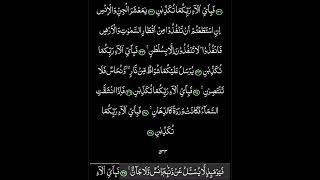 فَبِاَيِّ اٰلَآءِ رَبِّكُمَا تُكَذِّبٰنِ ﴿۳۲﴾ يٰمَعْشَرَ الْجِنِّ وَالْاِنْسِ
اِنِ اسْتَطَعْتُمْ اَنْ تَنْفُذُوْا مِنْ اَقْطَارِ السَّمٰوٰتِ وَالْاَرْضِ
فَانْفُذُوْا ؕ لَا تَنْفُذُوْنَ اِلَّا بِسُلْطٰنٍ ﴿۳۳﴾ فَبِاَيِّ اٰلَآءِ رَبِّكُمَا
تُكَذِّبٰنِ ﴿۳۴﴾ يُرْسَلُ عَلَيْكُمَا شُوَاظٌ مِّنْ نَّارٍ ۙ وَّنُحَاسٌ فَلَا
تَنْتَصِرٰنِ ﴿۳۵﴾ فَبِاَيِّ اٰلَآءِ رَبِّكُمَا تُكَذِّبٰنِ ﴿۳۶﴾ فَاِذَا انْشَقَّتِ
السَّمَآءُ فَكَانَتْ وَرْدَةً كَالدِّهَانِ ﴿۳۷﴾ فَبِاَيِّ اٰلَآءِ رَبِّكُمَا
تُكَذِّبٰنِ ﴿۳۸﴾
فَيَوْمَئِذٍ لَّا يُسْـَٔلُ عَنْ ذَنْۢبِهٖۤ اِنْسٌ وَّلَا جَآنٌّ ﴿۳۹﴾ فَبِاَيِّ اٰلَآءِ